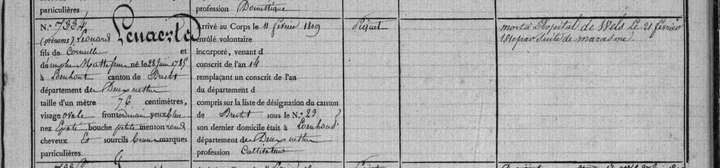 particulières.
profession Domestique
N.° 7334 Lenaerts
(prénoms) Leonard
fils de Corneille
et d
né le 28 Juin 1785
à canton de Brecht
département de
taille d'un mètre 76 centimètres,
visage ovale front yeux bleus
nez bouche petite menton rond
cheveux sourcils marques
particulières.
Arrivé au Corps le 11 février 1809
enrôlé volontaire
incorporé, venant d
conscrit de l'an 14
remplaçant un conscrit de l'an
du département d
compris sur la liste de désignation du canton
de Brecht sous le N.° 29
son dernier domicile était à
département des Deux nethes
profession Cultivateur
Piquet
mort à l'hôpital de Wels le 21 février
1810 par suite de marasme.